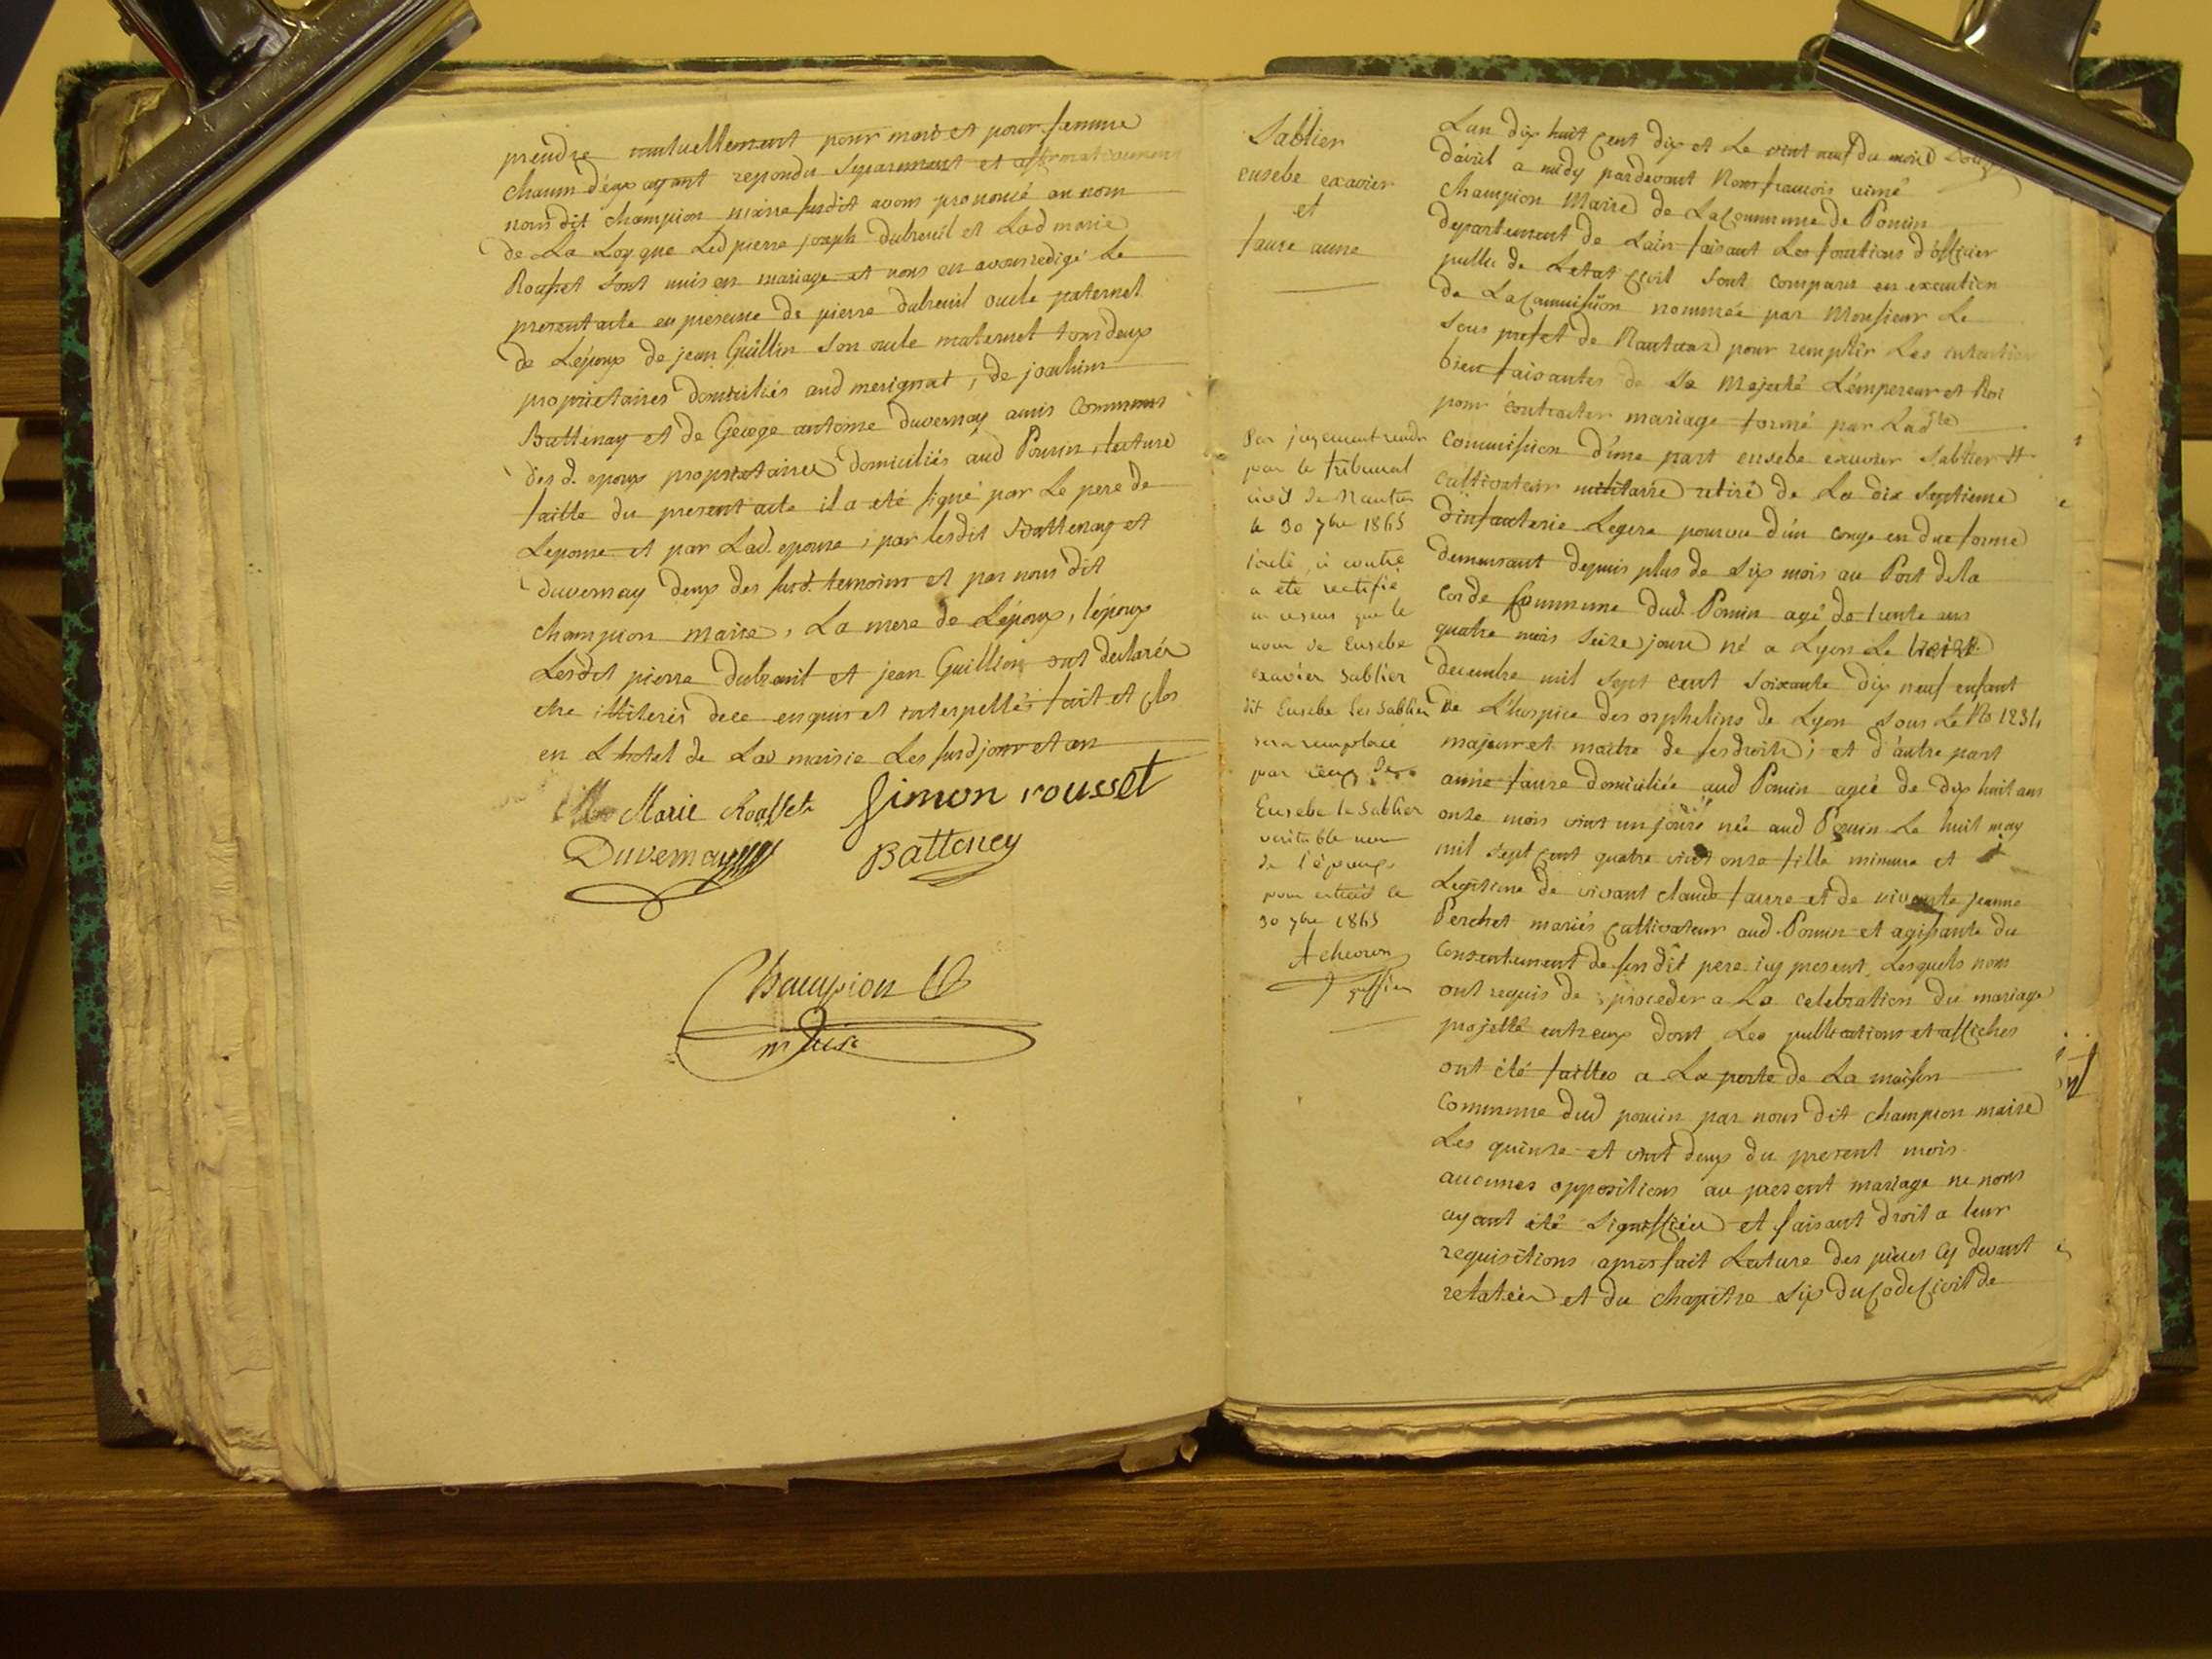 prendre mutuellement pour mari et pour femme
chacun d'eux ayant repondu separement et affirmativement
nous dit champion maire susdit avons prononcé au nom
de La Loy que Led pierre joseph dubreuil et Lad marie
Rousset sont unis en mariage et nous en avons redigé Le
present acte en presence de pierre dubreuil oncle paternel
de L'epoux de jean Guillin son oncle maternel tous deux
proprietaires domiciliés aud merignat, de joachim
Battenay et de George antoine duvernay amis communs
des d. epoux proprietaires domiciliés aud Poncin, lecture
faitte du present acte il a eté signé par Le pere de
Lepouse et par Lad. epouse, par lesdit Battenay et
duvernay deux des susd. temoins et par nous dit
champion maire, La mere de L'époux, l'époux
Lesdit pierre dubreuil et jean Guillion ont declarés
etre illiterés dece enquis et interpellés fait et clos
en L'hotel de Lad mairie Les susd jour et an
Marie Rousset Simon rousset
Duvernay Batteney
Champion
maire
Sablier
eusebe exavier
et
faure anne
Par jugement rendu
par le tribunal
civil de Nantua
le 30 7bre 1865
l'acte ci contre
a été rectifié
en ce sens que le
nom de Eusebe
exavier Sablier
dit Eusebe les Sablier
sera remplacé
par ceux de
Eusebe le Sablier
veritable nom
de l'époux
pour extrait le
30 7bre 1865
greffier
Lan dix huit cent dix et Le vint neuf du mois
d'avril a midy pardevant Nous francois aimé
champion Maire de La Commune de Poncin
departement de L'ain faisant Les fonctions d'officier
public de Letat Civil sont comparu en execution
de La Commission nommée par Monsieur Le
sous prefet de Nantua pour remplir Les intentions
bienfaisantes de Sa Majesté L'émpereur et Roi
pour contracter mariage formé par Ladte
Commission d'une part eusebe exavier Sablier
Cultivateur militaire retiré de La dix septieme
d'infanterie Legere pourvu d'un congé en due forme
demeurant depuis plus de six mois au Port de la
Corde Commune dud. Poncin agé de trente ans
quatre mois seize jours né a Lyon Le treize
decembre mil sept cent soixante dix neuf enfant
de L'hospice des orphelins de Lyon sous Le No 1234
majeur et maitre de ses droits; et d'autre part
anne faure domiciliée aud Poncin agée de dix huit ans
onze mois vint un jours née aud Poncin Le huit may
mil sept cent quatre vint onze fille mineure et
Legitime de vivant claude faure et de vivante jeanne
Perchet mariés Cultivateur aud. Poncin et agissante du
Consentement de sondit pere icy present, Lesquels nous
ont requis de proceder a La celebration du mariage
projetté entreux dont Les publications et affiches
ont été faittes a La porte de La maison
Commune dud poncin par nous dit champion maire
Les quinze et vint deux du present mois
aucunes oppositions au present mariage ne nous
ayant été signiffiées et faisant droit a leur
requisitions apres fait Lecture des pieces Cy devant
relatées et du chapitre six du Code Civil de